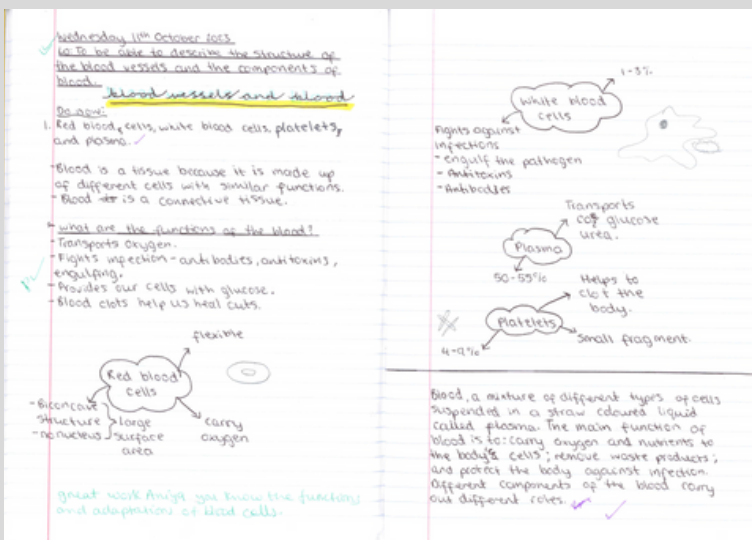 Wednesday 11th October 2023
LO: To be able to describe the structure of
the blood vessels and the components of
blood.
blood vessels and blood
Do now:
1. Red blood cells, white blood cells, platelets,
and plasma.
- Blood is a tissue because it is made up
of different cells with similar functions.
- Blood is a connective tissue.
what are the functions of the blood?
- Transports oxygen.
- Fights infection - antibodies, antitoxins,
engulfing.
- Provides our cells with glucose.
- Blood clots help us heal cuts.
flexible
Red blood
cells
- Biconcave
structure
- no nucleus
Large
surface
area
carry
oxygen
great work Aniya you know the functions
and adaptation of blood cells.
1-3%
White blood
cells
Fights against
infections
- engulf the pathogen
- Antitoxins
- Antibodies
Transports
glucose
urea.
Plasma
50-55%
Helps to
clot the
body.
Platelets
small fragment.
Blood, a mixture of different types of cells
suspended in a straw coloured liquid
called plasma. The main function of
blood is to: carry oxygen and nutrients to
the body's cells; remove waste products;
and protect the body against infection.
Different components of the blood carry
out different roles.